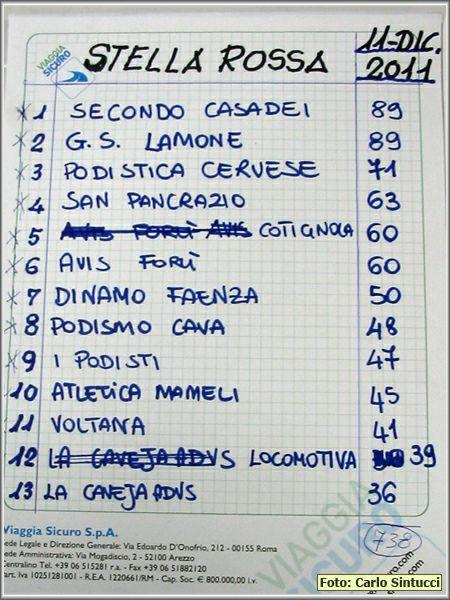 VIAGGIA SICURO
STELLA ROSSA 11-DIC. 2011
1 SECONDO CASADEI 89
2 G.S. LAMONE 89
3 PODISTICA CERVESE 71
4 SAN PANCRAZIO 63
5 AVIS FORLÌ AVIS COTIGNOLA 60
6 AVIS FORLÌ 60
7 DINAMO FAENZA 50
8 PODISMO CAVA 48
9 I PODISTI 47
10 ATLETICA MAMELI 45
11 VOLTANA 41
12 LA CAVEJA ADVS LOCOMOTIVA 39
13 LA CAVEJA ADVS 36
Viaggia Sicuro S.p.A.
Sede Legale e Direzione Generale: Via Edoardo D'Onofrio, 212 - 00155 Roma
Sede Amministrativa: Via Mogadiscio, 2 - 52100 Arezzo
Centralino Tel. +39 06 515281 r.a. - Fax +39 06 51882120
Part. Iva 10251281001 - R.E.A. 1220661/RM - Cap. Soc. € 800.000,00 i.v.
VIAGGIA
SICURO
738
Foto: Carlo Sintucci